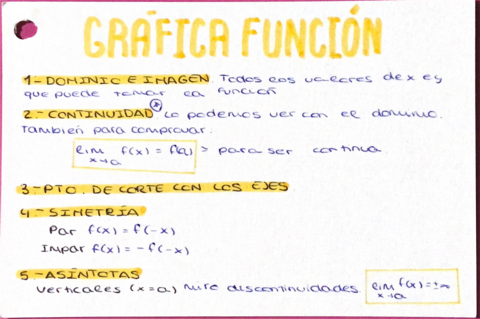 GRÁFICA FUNCIÓN
1- DOMINIO E IMAGEN. Todos los valores de x e y
que puede tomar la función
2.- CONTINUIDAD * Lo podemos ver con el dominio.
También para comprovar:
lim f(x) = f(a) > para ser continua.
x→a
3- PTO. DE CORTE CON LOS EJES
4.- SIMETRÍA
Par f(x) = f(-x)
Impar f(x) = -f(-x)
5 - ASÍNTOTAS
Verticales (x=a) mire discontinuidades. lim f(x) = ±∞
x→a